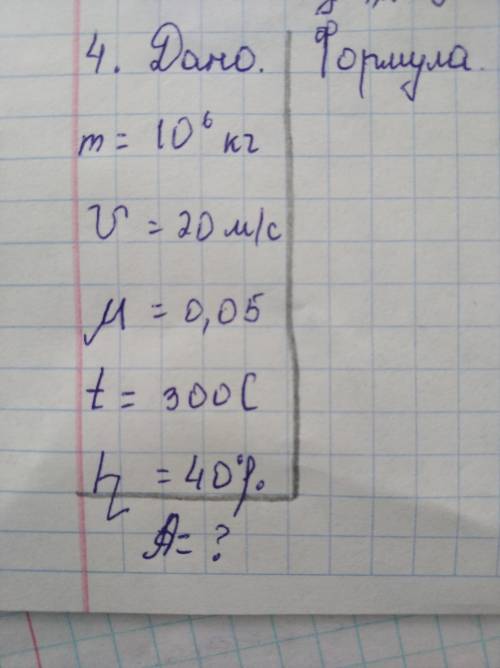 4. Дано. Формула.
m = 10⁶ кг
v = 20 м/с
μ = 0,05
t = 300 С
η = 40%.
A = ?